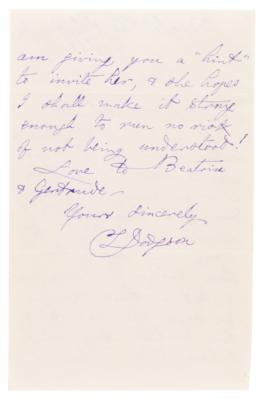 am giving you a "hint"
to invite her, & she hopes
I shall make it strong
enough to run no risk
of not being understood!
Love to Beatrice
& Gertrude.
Yours sincerely
C L Dodgson